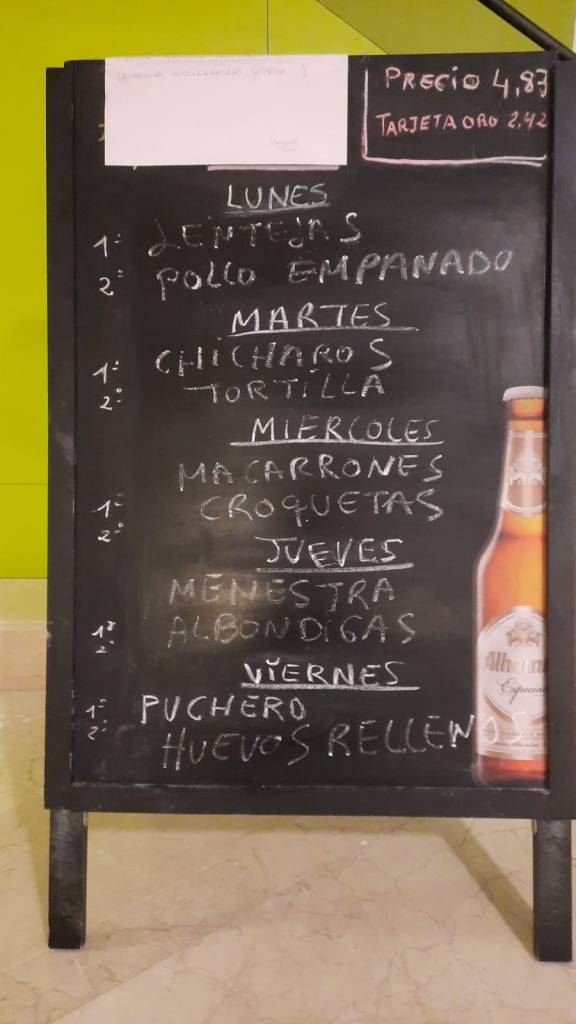 PRECIO 4,87
TARJETA ORO 2,42
LUNES
1º LENTEJAS
2º POLLO EMPANADO
MARTES
1º CHICHAROS
2º TORTILLA
MIERCOLES
1º MACARRONES
2º CROQUETAS
JUEVES
1º MENESTRA
2º ALBONDIGAS
VIERNES
1º PUCHERO
2º HUEVOS RELLENOS
Especial